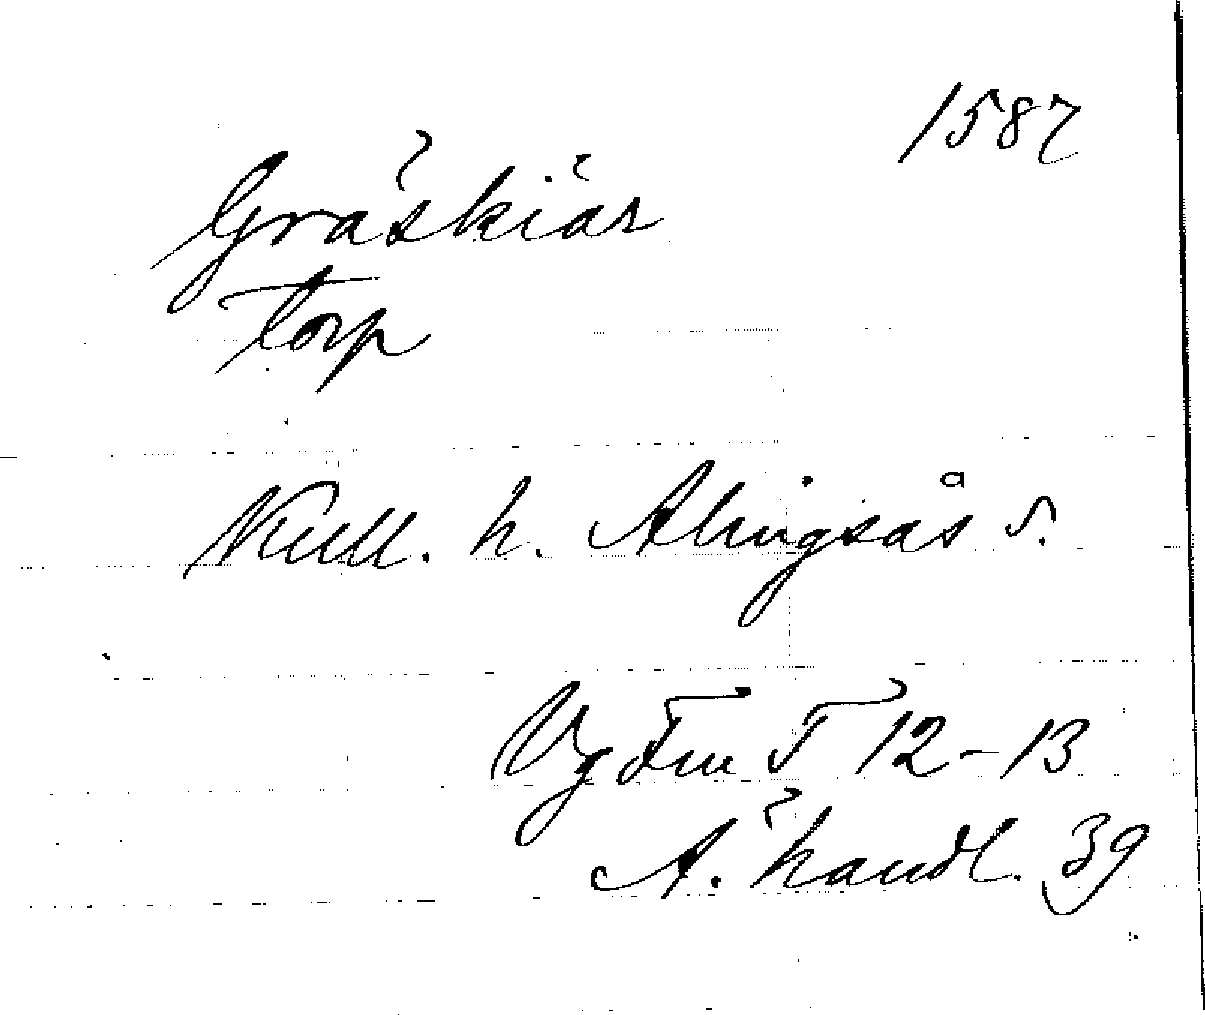 1587
Gräskiär
torp
Kull. h. Alingsås s.
Vg Fm I 12-13
A. handl. 39